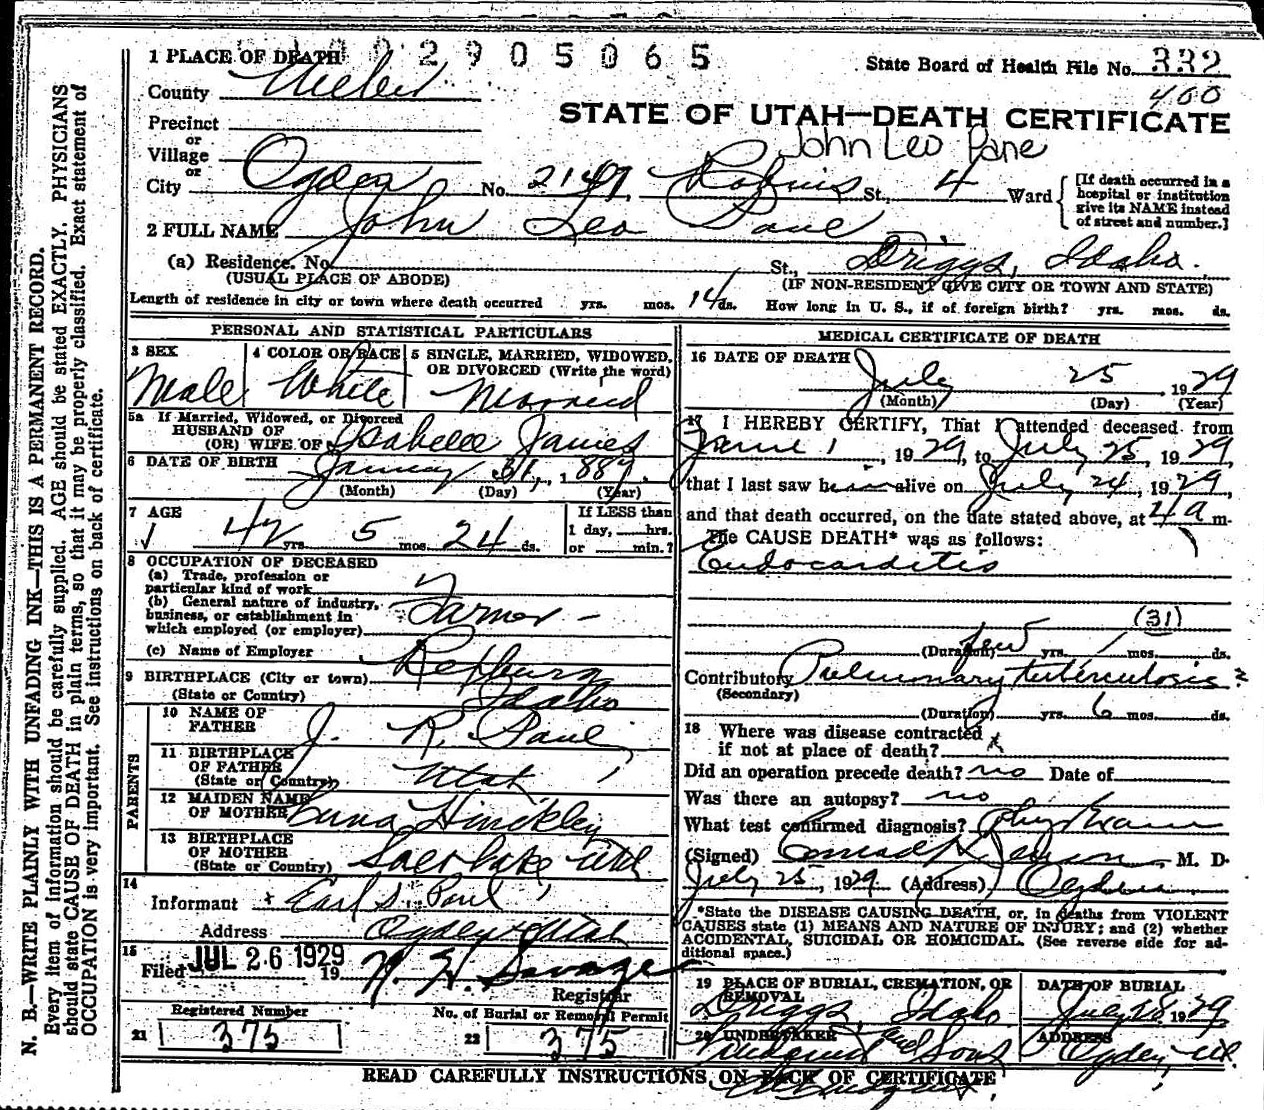 2905065
1 PLACE OF DEATH
State Board of Health File No. 332
County Weber
400
STATE OF UTAH—DEATH CERTIFICATE
Precinct
or
Village
John Leo Pane
or
City Ogden No. 2149 Robins St., 4 Ward
[If death occurred in a hospital or institution give its NAME instead of street and number.]
2 FULL NAME John Leo Paul
(a) Residence. No. St., Driggs, Idaho.
(USUAL PLACE OF ABODE) (IF NON-RESIDENT GIVE CITY OR TOWN AND STATE)
Length of residence in city or town where death occurred yrs. mos. 14 ds. How long in U. S., if of foreign birth? yrs. mos. ds.
PERSONAL AND STATISTICAL PARTICULARS
3 SEX Male
4 COLOR OR RACE White
5 SINGLE, MARRIED, WIDOWED, OR DIVORCED (Write the word) Married
5a If Married, Widowed, or Divorced
HUSBAND OF
(OR) WIFE OF Isabelle James
6 DATE OF BIRTH January 31, 1887.
(Month) (Day) (Year)
7 AGE 42 yrs. 5 mos. 24 ds.
If LESS than
1 day, hrs.
or min.?
8 OCCUPATION OF DECEASED
(a) Trade, profession or
particular kind of work
(b) General nature of industry,
business, or establishment in
which employed (or employer) Farmer
(c) Name of Employer
9 BIRTHPLACE (City or town) Rexburg
(State or Country) Idaho
PARENTS
10 NAME OF
FATHER J. R. Paul
11 BIRTHPLACE
OF FATHER
(State or Country) Utah
12 MAIDEN NAME
OF MOTHER Hinckley
13 BIRTHPLACE
OF MOTHER
(State or Country) Salt Lake Utah
14
Informant Earl S. Paul
Address Ogden Utah
15
Filed JUL 26 1929 19
Registrar
Registered Number
21 375
No. of Burial or Removal Permit
22 375
MEDICAL CERTIFICATE OF DEATH
16 DATE OF DEATH July 25, 1929
(Month) (Day) (Year)
17 I HEREBY CERTIFY, That I attended deceased from
June 1, 1929, to July 25, 1929,
that I last saw him alive on July 24, 1929,
and that death occurred, on the date stated above, at 4 a m.
The CAUSE DEATH* was as follows:
Endocarditis
(31)
(Duration) few yrs. mos. ds.
Contributory Pulmonary tuberculosis
(Secondary)
(Duration) yrs. 6 mos. ds.
18 Where was disease contracted
if not at place of death?
Did an operation precede death? no Date of
Was there an autopsy? no
What test confirmed diagnosis? Phys Exam
(Signed) Conrad H. Jenson M. D.
July 25, 1929 (Address) Ogden
*State the DISEASE CAUSING DEATH, or, in deaths from VIOLENT
CAUSES state (1) MEANS AND NATURE OF INJURY; and (2) whether
ACCIDENTAL, SUICIDAL OR HOMICIDAL. (See reverse side for ad-
ditional space.)
19 PLACE OF BURIAL, CREMATION, OR
REMOVAL
Driggs, Idaho
DATE OF BURIAL
July 28 1929
20 UNDERTAKER
and Sons
ADDRESS
Ogden, Ut.
READ CAREFULLY INSTRUCTIONS ON BACK OF CERTIFICATE
N. B.—WRITE PLAINLY WITH UNFADING INK—THIS IS A PERMANENT RECORD.
Every item of information should be carefully supplied. AGE should be stated EXACTLY. PHYSICIANS
should state CAUSE OF DEATH in plain terms, so that it may be properly classified. Exact statement of
OCCUPATION is very important. See instructions on back of certificate.